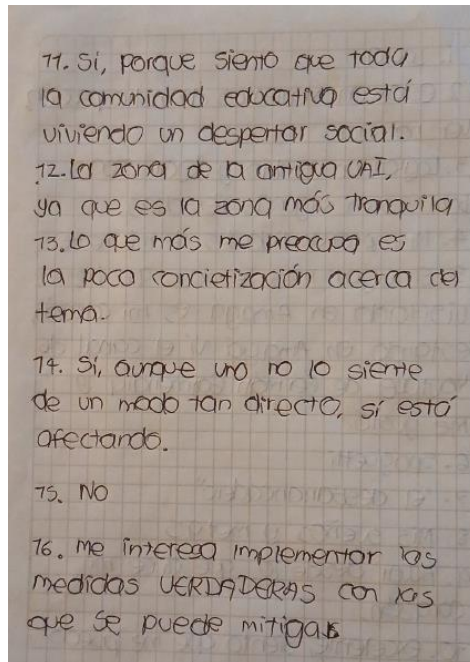 11. Sí, porque siento que toda
la comunidad educativa está
viviendo un despertar social.
12. La zona de la antigua UAI,
ya que es la zona más tranquila
13. Lo que más me preocupa es
la poco concietización acerca del
tema.
14. Sí, aunque uno no lo siente
de un modo tan directo, sí está
afectando.
15. No
16. me interesa implementar las
medidas VERDADERAS con las
que se puede mitigar